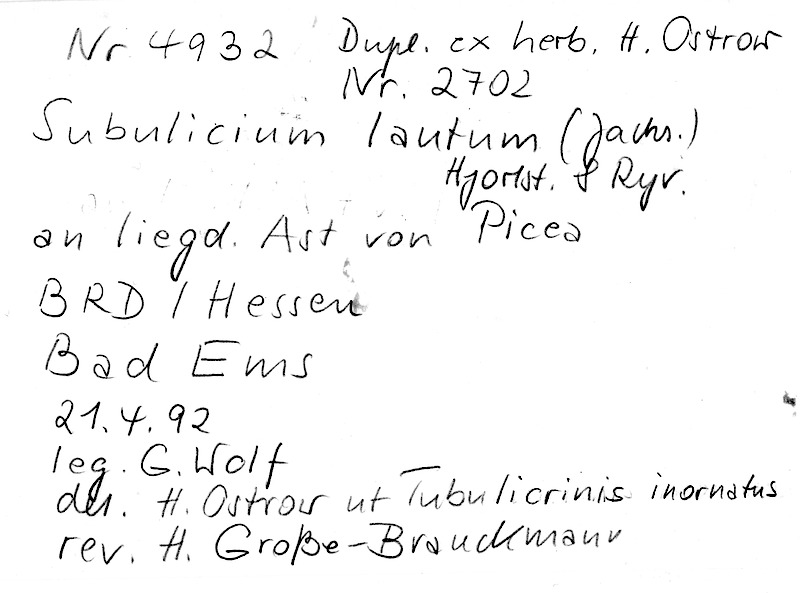 Nr 4932 Dupl. ex herb. H. Ostrow
Nr. 2702
Subulicium lautum (Jacks.)
Hjortst. & Ryv.
an liegd. Ast von Picea
BRD / Hessen
Bad Ems
21.4.92
leg. G. Wolf
det. H. Ostrow ut Tubulicrinis inornatus
rev. H. Große-Brauckmann